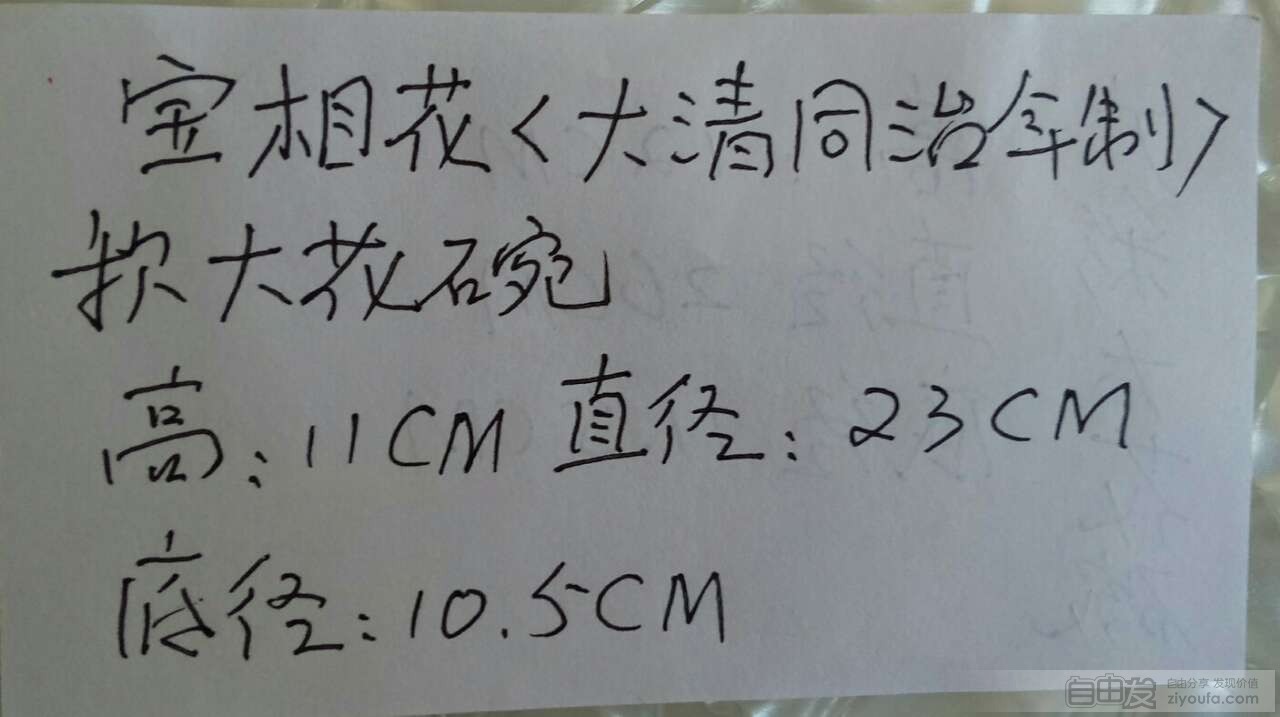 宝相花〈大清同治年制〉
款大花碗
高:11CM 直径:23CM
底径:10.5CM
自由发 自由分享 发现价值
ziyoufa.com